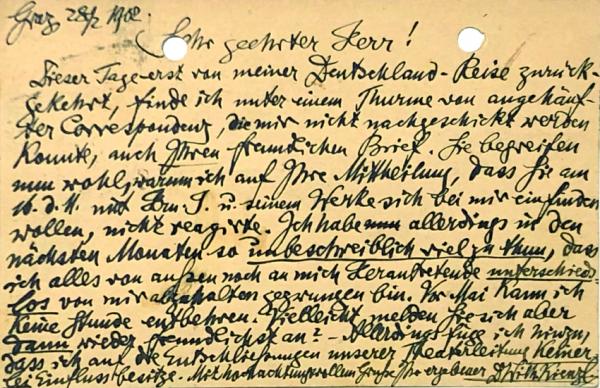 Graz 28/2 1908.
Sehr geehrter Herr!
Dieser Tage erst von meiner Deutschland-Reise zurück-
gekehrt, finde ich unter einem Thurme von angehäuf-
ter Correspondenz, die mir nicht nachgeschickt werden
konnte, auch Ihren freundlichen Brief. Sie begreifen
nun wohl, warum ich auf Ihre Mittheilung, dass Sie am
16. d. M. mit Hrn. u. seinem Werke sich bei mir einfinden
wollen, nicht reagirte. Ich habe nun allerdings in den
nächsten Monaten so unbeschreiblich viel zu thun, dass
ich alles von außen noch an mich Herantretende unterschieds-
los von mir abzuhalten gezwungen bin. Vor Mai kann ich
keine Stunde entbehren. Vielleicht melden Sie sich aber
dann wieder freundlichst an? - Allerdings füge ich hinzu,
dass ich auf die Entschließungen unserer Theaterleitung keiner-
lei Einfluss besitze. Mit hochachtungsvollem Gruße Ihr ergebener Dr Wilh Kienzl